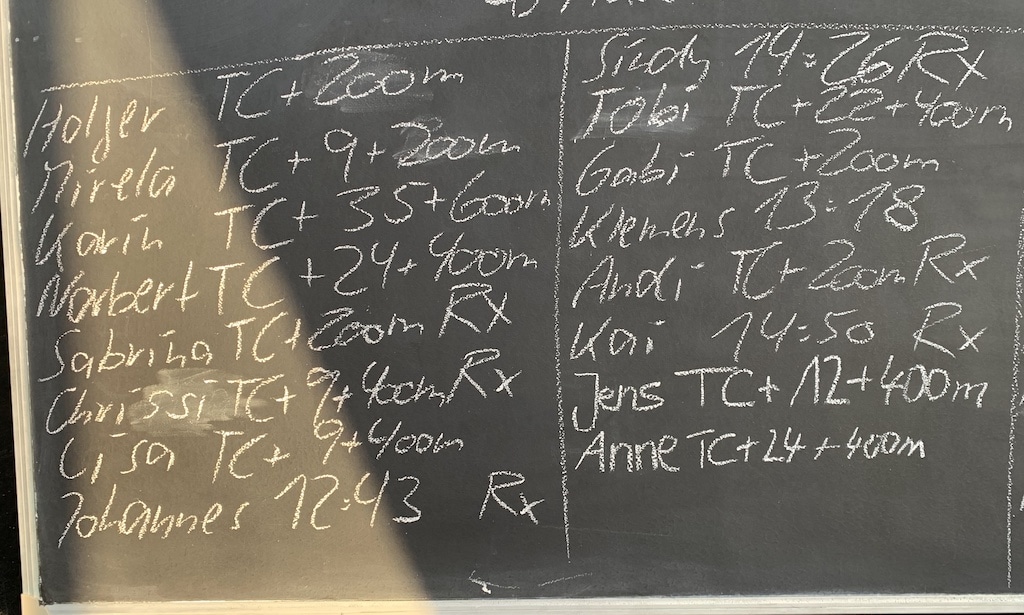 Holger TC + 200m
Mirela TC + 9 + 200m
Karin TC + 35 + 600m
Norbert TC + 24 + 400m
Sabrina TC + 200m Rx
Chrissi TC + 9 + 400m Rx
Lisa TC + 9 + 400m
Johannes 12:43 Rx
Sindy 14:26 Rx
Tobi TC + 22 + 400m
Gabi TC + 200m
Klemens 13:18
Andi TC + 200m Rx
Kai 14:50 Rx
Jens TC + 12 + 400m
Anne TC + 24 + 400m